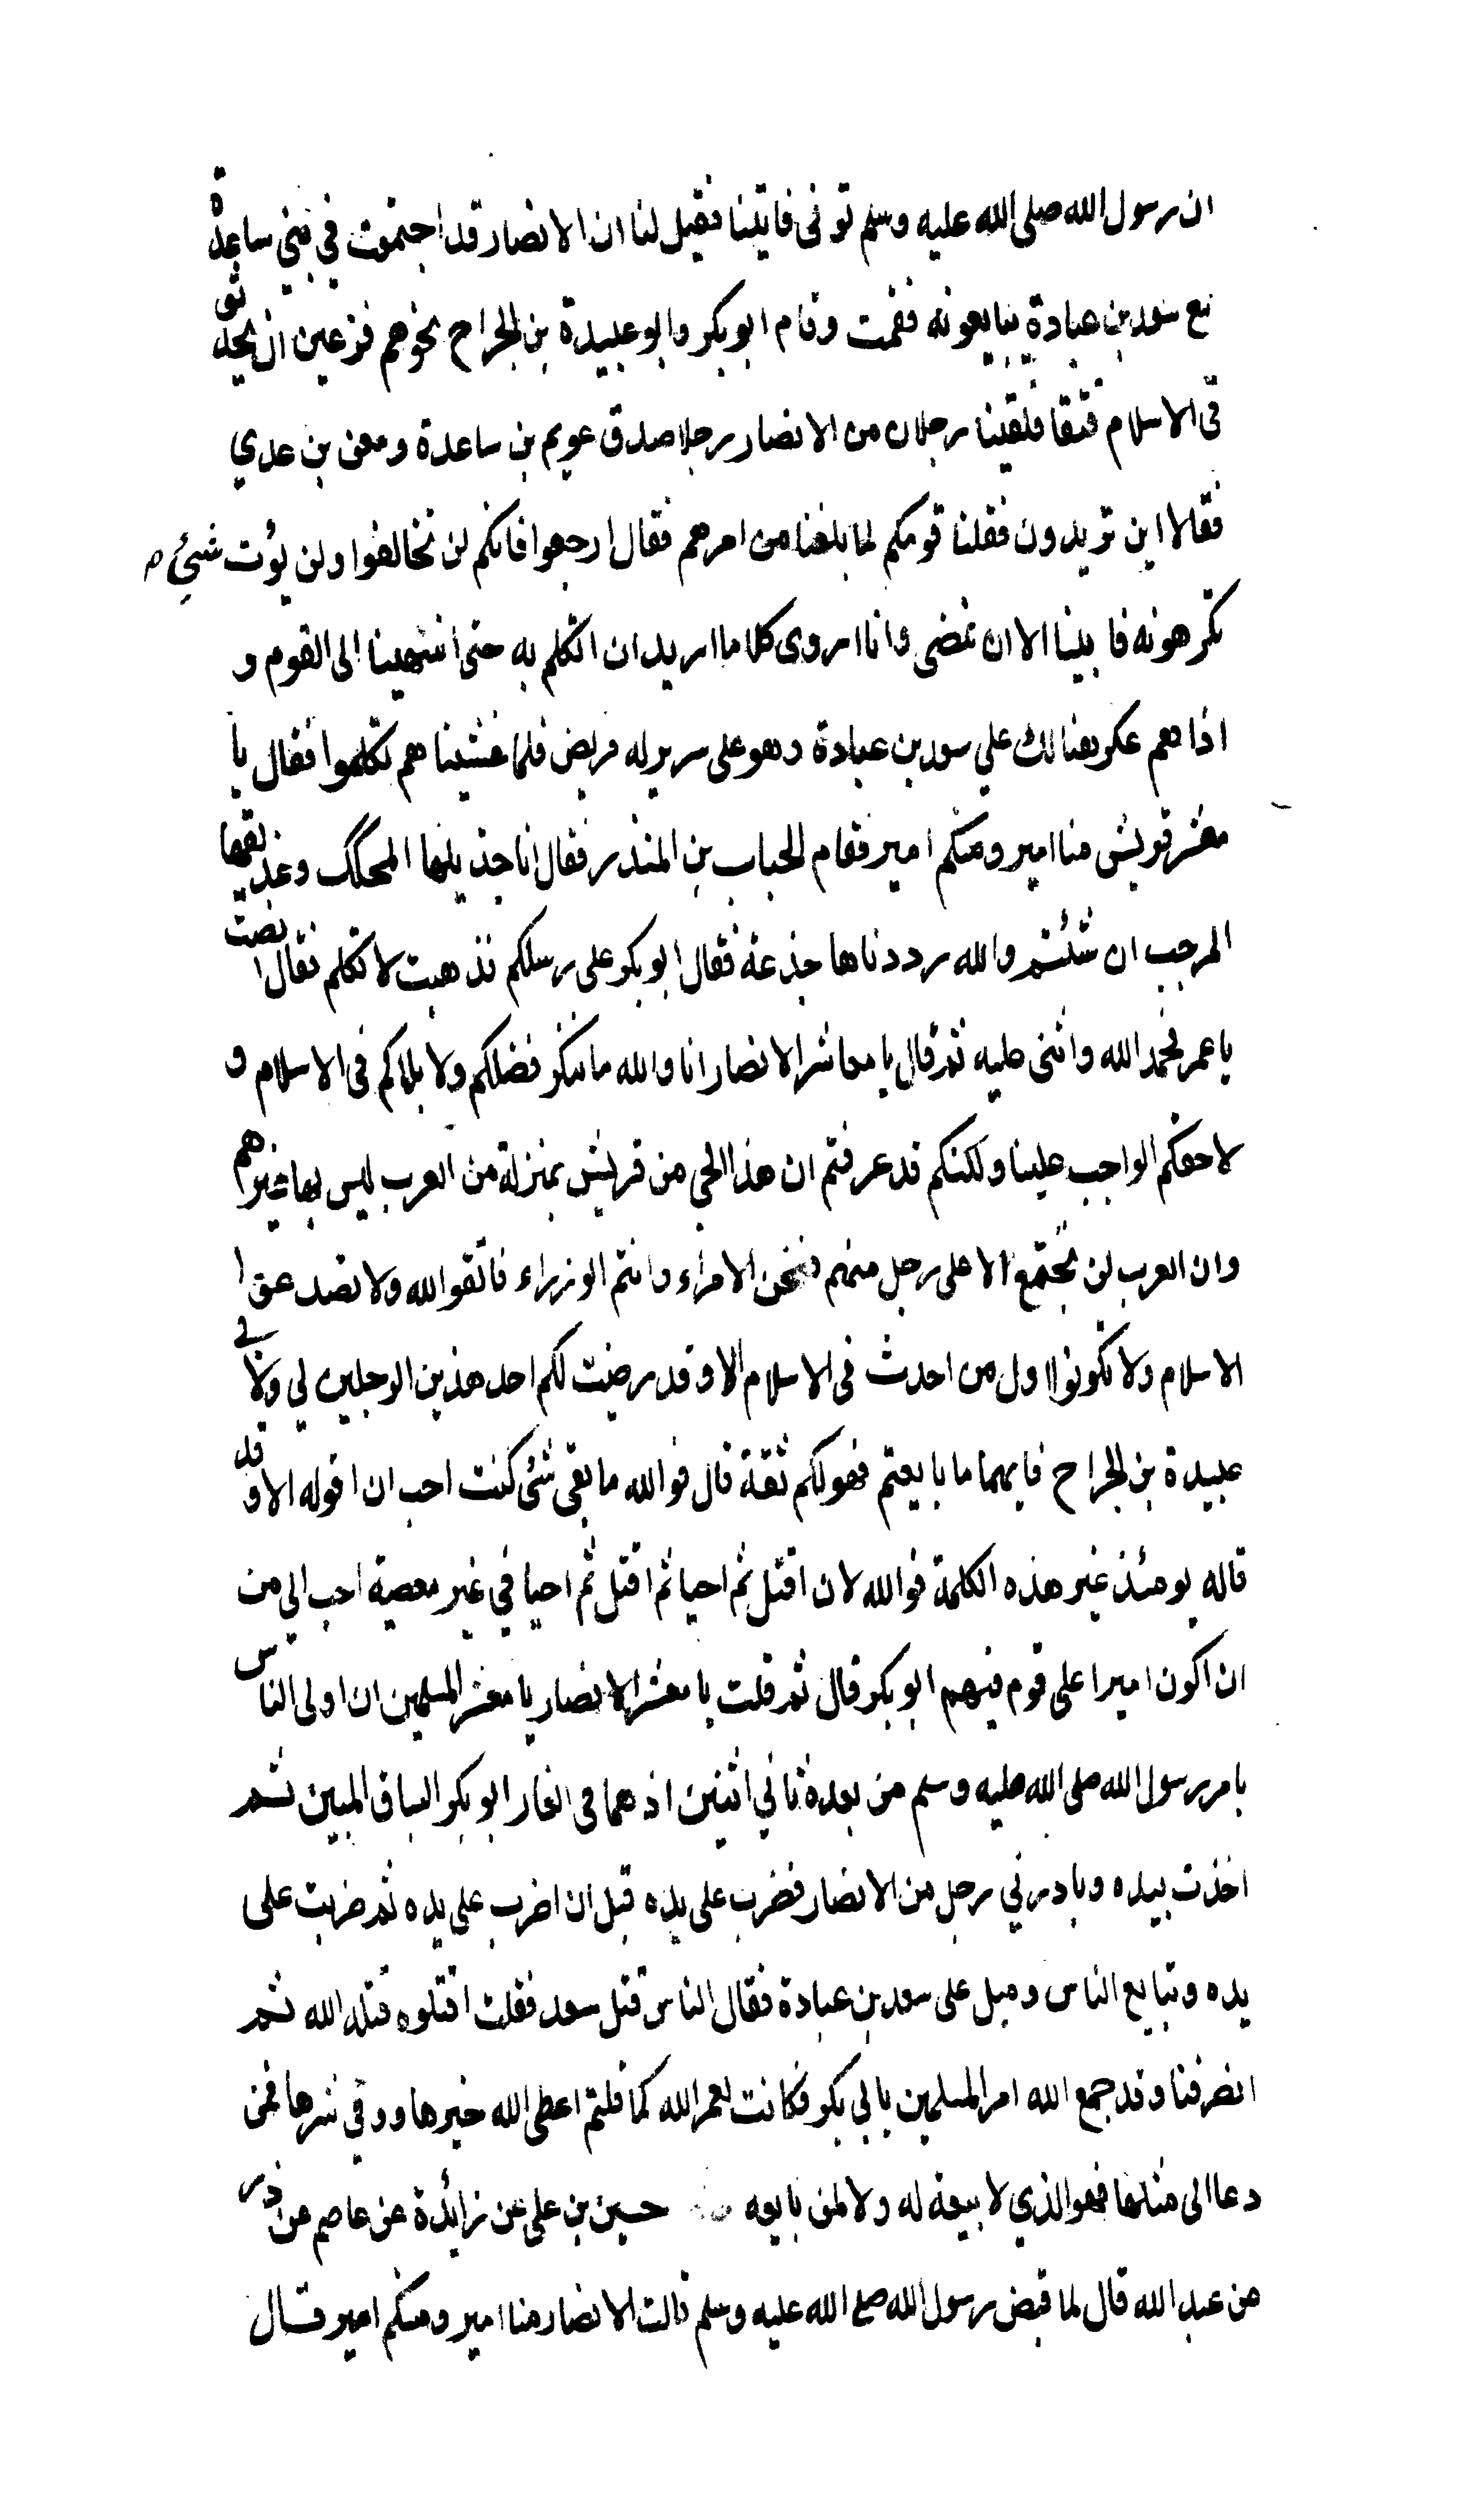 ان رسول الله صلى الله عليه وسلم توفى فاتينا فقيل لنا ان الانصار قد اجتمعت في بني ساعدة
مع سعد بن عبادة يبايعونه فقمت وقام ابو بكر وابو عبيدة بن الجراح نحوهم فزعين ان يحدثوا
فى الاسلام فتقا فلقينا رجلان من الانصار رجلا صدق عويم بن ساعدة ومعن بن عدي
فقالا اين تريدون فقلنا قومكم لما بلغنا من امرهم فقال ارجعوا فانكم لن تخالفوا ولن يؤت شيئ
تكرهونه فابينا الا ان نمضى وانا اروى كلاما اريد ان اتكلم به حتى انتهينا الى القوم و
اذا هم عكر هنالك علي سعد بن عبادة وهو على سرير له مريض فلما غشيناهم تكلموا فقال يا
معشر قريش منا امير ومنكم امير فقام الحباب بن المنذر فقال انا جذيلها المحكك وعذيقها
المرجب ان شئتم والله رددناها جذعة فقال ابو بكر على رسلكم فذهبت لا تكلم فقال انصت
يا عمر فحمد الله واثنى عليه ثم قال يا معاشر الانصار انا والله ما ننكر فضلكم ولا بلاكم فى الاسلام و
لا حقكم الواجب علينا ولكنكم قد عرفتم ان هذا الحي من قريش بمنزلة من العرب ليس بها غيرهم
وان العرب لن تجتمع الا على رجل منهم فنحن الامراء وانتم الوزراء فاتقوا الله ولا تصدعوا
الاسلام ولا تكونوا اول من احدث فى الاسلام الا وقد رضيت لكم احد هذين الرجلين لي ولابي
عبيدة بن الجراح فايهما ما بايعتم فهو لكم ثقة قال فوالله ما بقى شئ كنت احب ان اقوله الا وقد
قاله يومئذ غير هذه الكلمة فوالله لان اقتل ثم احيا ثم اقتل ثم احيا في غير معصية احب الي من
ان اكون اميرا على قوم فيهم ابو بكر قال ثم قلت يا معشر الانصار يا معشر المسلمين ان اولى الناس
بامر رسول الله صلى الله عليه وسلم من بعده ثاني اثنين اذ هما فى الغار ابو بكر السباق المبين ثم
اخذت بيده وبادرني رجل من الانصار فضرب على يده قبل ان اضرب على يده ثم ضربت على
يده وتبايع الناس وميل على سعد بن عبادة فقال الناس قتل سعد فقلت اقتلوه قتله الله ثم
انصرفنا وقد جمع الله امر المسلمين بابي بكر فكانت لعمر الله كما قلتم اعطى الله خيرها ووقي شرها فمن
دعا الى مثلها فهو الذي لا بيعة له ولا لمن بايعه حسين بن على عن زائدة عن عاصم عن ذر
عن عبد الله قال لما قبض رسول الله صلع الله عليه وسلم قالت الانصار منا امير ومنكم امير قال